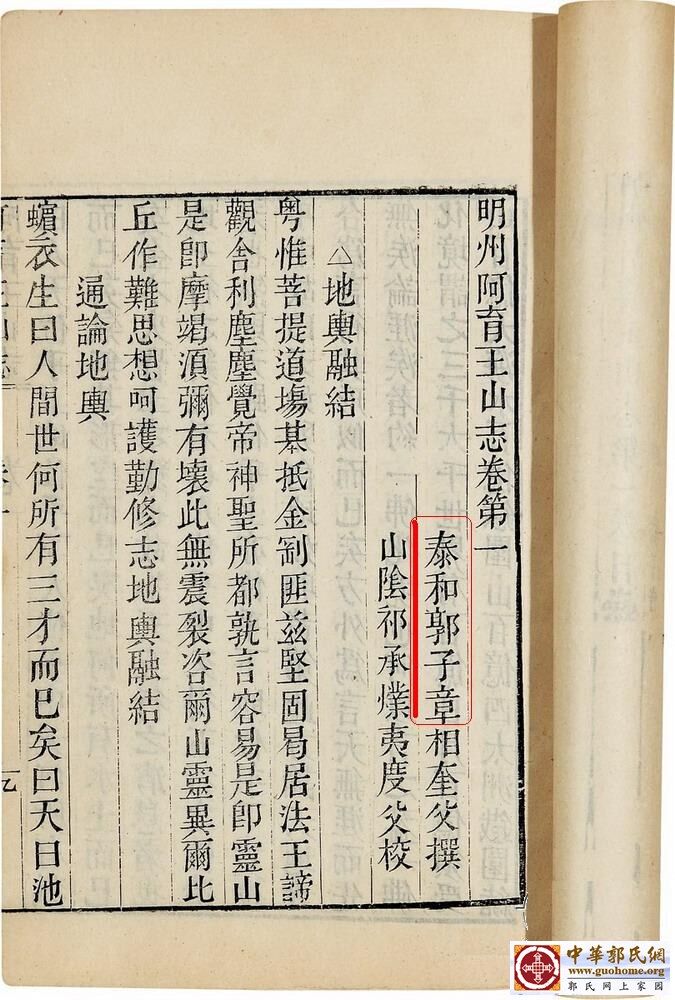 明州阿育王山志卷第一
泰和郭子章相奎父撰
山陰祁承㸁夷度父校
△地輿融結
粤惟菩提道場基抵金剛匪兹堅固曷居法王諦
觀舍利塵塵覺帝神聖所都孰言容易是卽靈山
是卽摩竭湏彌有壞此無震裂咨爾山靈異爾比
丘作難思想呵護勤修志地輿融結
通論地輿
蠙衣生曰人間世何所有三才而巳矣曰天曰池
中華郭氏網
www.guohome.org
郭氏网上家园